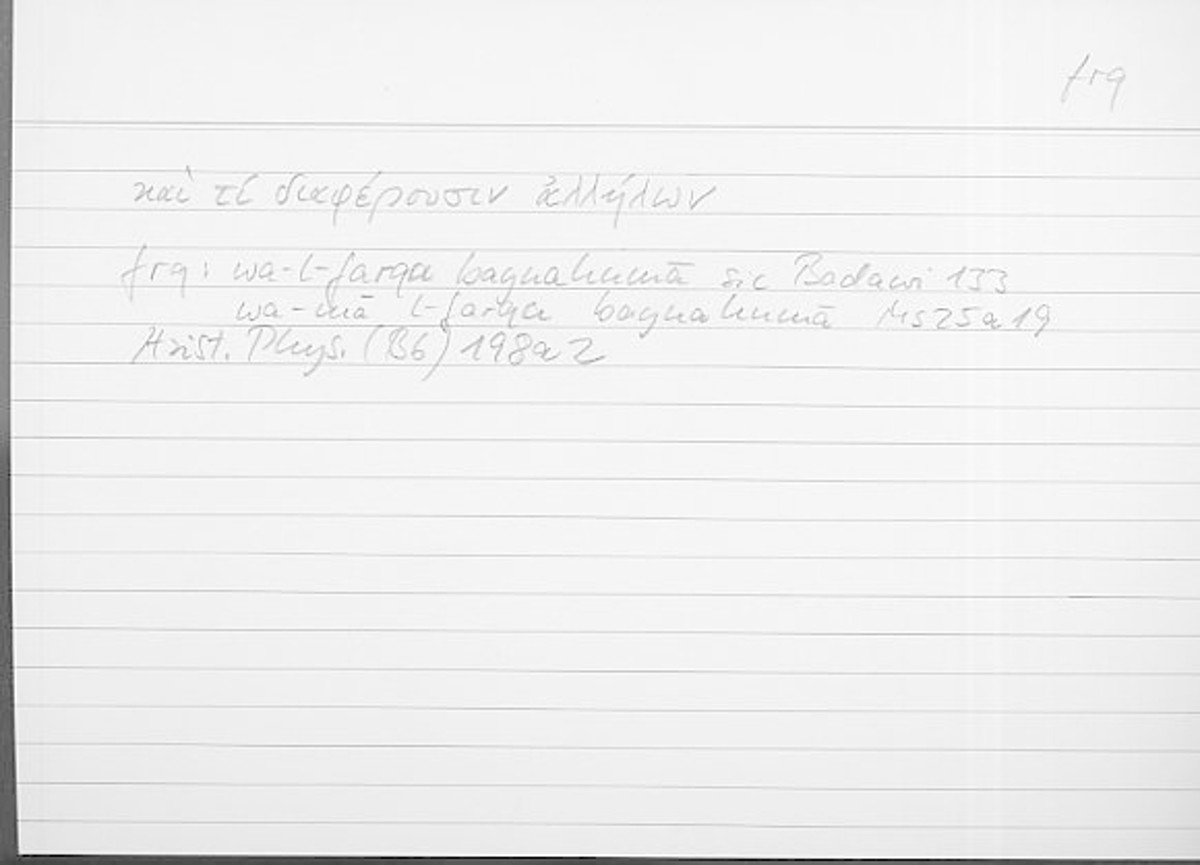 frq
καὶ τί διαφέρουσιν ἀλλήλων
frq: wa-l-farqa baynahumā sic Badawi 133
wa-mā l-farqu baynahumā Ms 25a19
Arist. Phys. (B6) 198a2